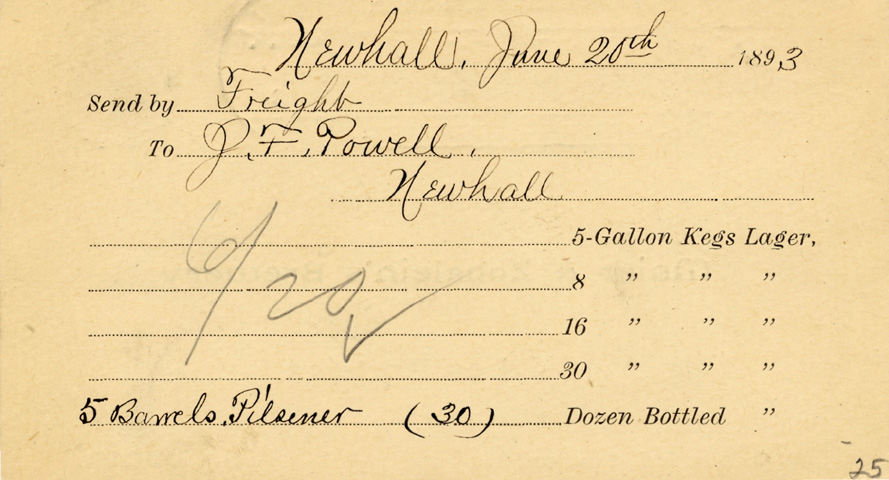 Newhall, June 20th 1893
Send by Freight
To J. F. Powell.
Newhall
5-Gallon Kegs Lager,
8 " " "
16 " " "
30 " " "
6/20
5 Barrels Pilsener (30) Dozen Bottled "
25